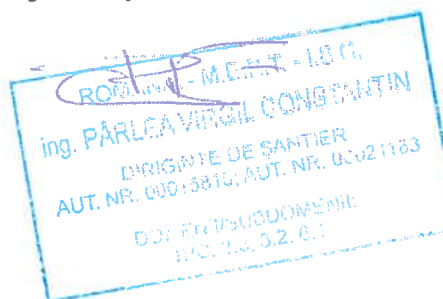 ROMANIA - M.E.R.T. - I.S.C.
ing. PÂRLEA VIRGIL CONSTANTIN
DIRIGINTE DE SANTIER
AUT. NR. 00015810; AUT. NR. 00021183
DOMENII/SUBDOMENII: